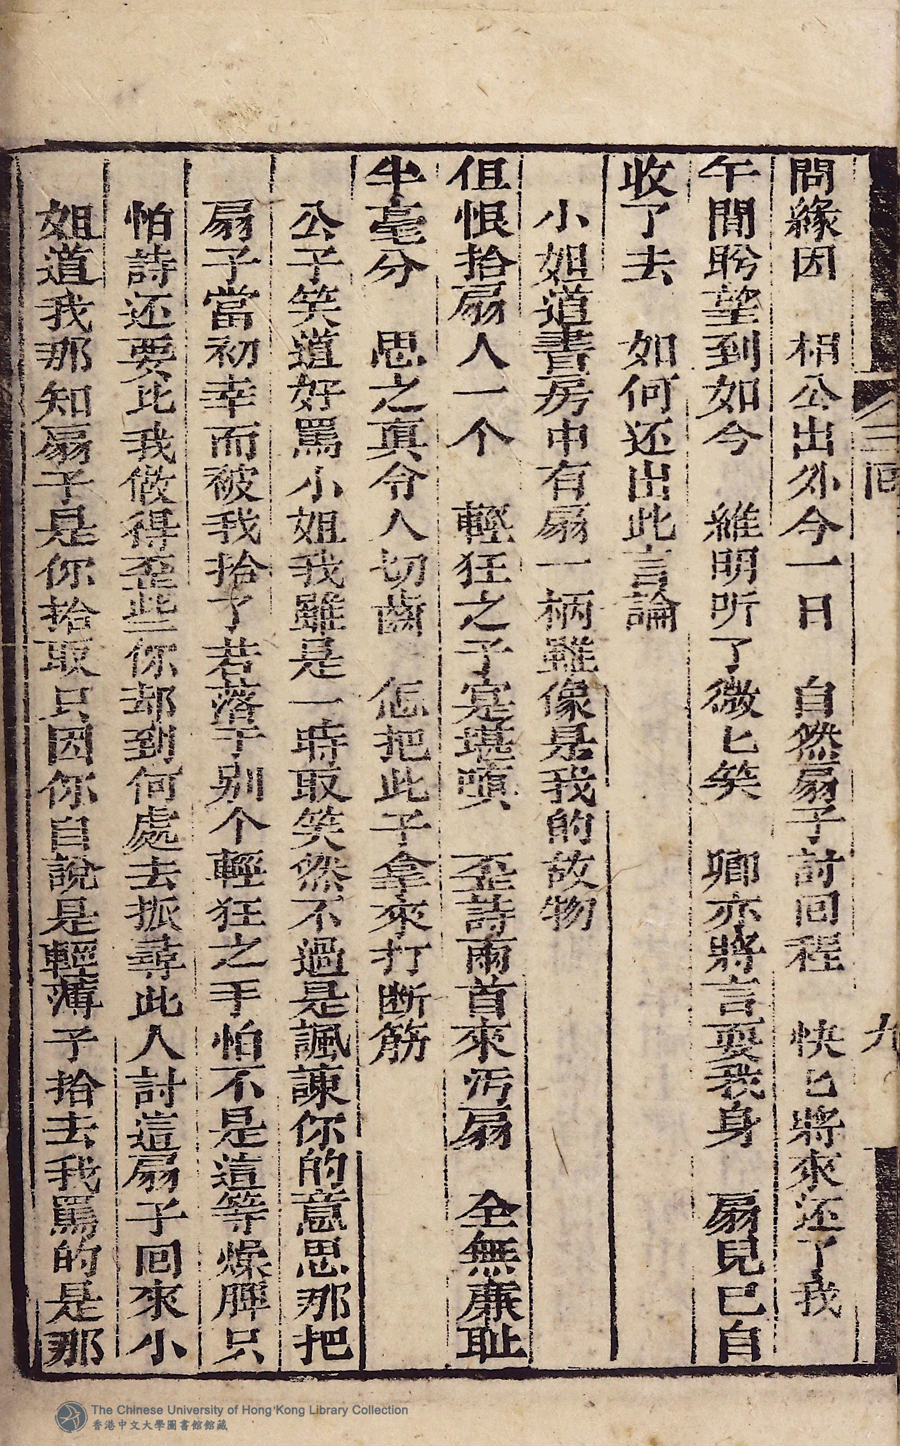 問緣因　相公出外今一日　自然扇子討回程　快匕將來还了我
午間盻望到如今　維明听了微匕笑　卿亦將言耍我身　扇兒已自
收了去　如何还出此言論
小姐道書房中有扇一柄雖像是我的故物
但恨拾扇人一个　輕狂之子寔堪嗔　歪詩兩首來污扇　全無亷耻
半毫分　思之真令人切齒　怎把此子拿來打断筋
公子笑道好罵小姐我雖是一時取笑然不過是諷諫你的意思那把
扇子當初幸而被我拾了若落于别个輕狂之手怕不是這等燥脾只
怕詩还要比我做得歪些你却到何處去捱尋此人討這扇子回來小
姐道我那知扇子是你拾取只因你自說是輕薄子拾去我罵的是那
三回
九
The Chinese University of Hong Kong Library Collection
香港中文大學圖書館館藏